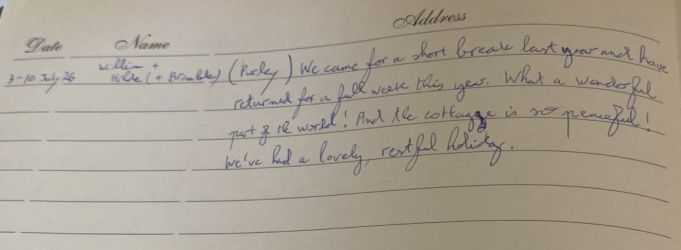 Address
Date Name
3-10 July 26 William + Hilde (+ Bramble) (Purley) We came for a short break last year and have
returned for a full week this year. What a wonderful
part of the world! And the cottage is so peaceful!
We've had a lovely, restful holiday.